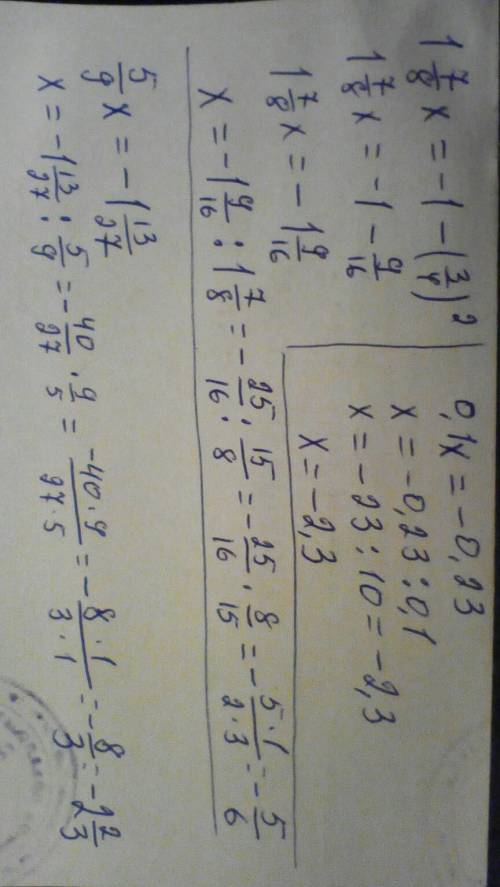 1 7/8 x = -1 - (3/4)²
1 7/8 x = -1 - 9/16
1 7/8 x = - 1 9/16
x = -1 9/16 : 1 7/8 = - 25/16 : 15/8 = - 25/16 · 8/15 = - 5·1/2·3 = - 5/6
0,1x = -0,23
x = -0,23 : 0,1
x = -23 : 10 = -2,3
x = -2,3
5/9 x = -1 13/27
x = -1 13/27 : 5/9 = - 40/27 · 9/5 = -40·9/27·5 = - 8·1/3·1 = - 8/3 = -2 2/3